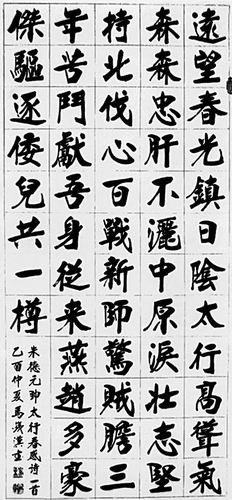 遠望春光鎮日陰太行高聳氣
森森忠肝不灑中原淚壯志堅
持北伐心百戰新師驚賊膽三
年苦鬥獻吾身從来燕趙多豪
傑驅逐倭兒共一樽
朱德元帥太行春感詩一首
乙酉仲夏馬漢書